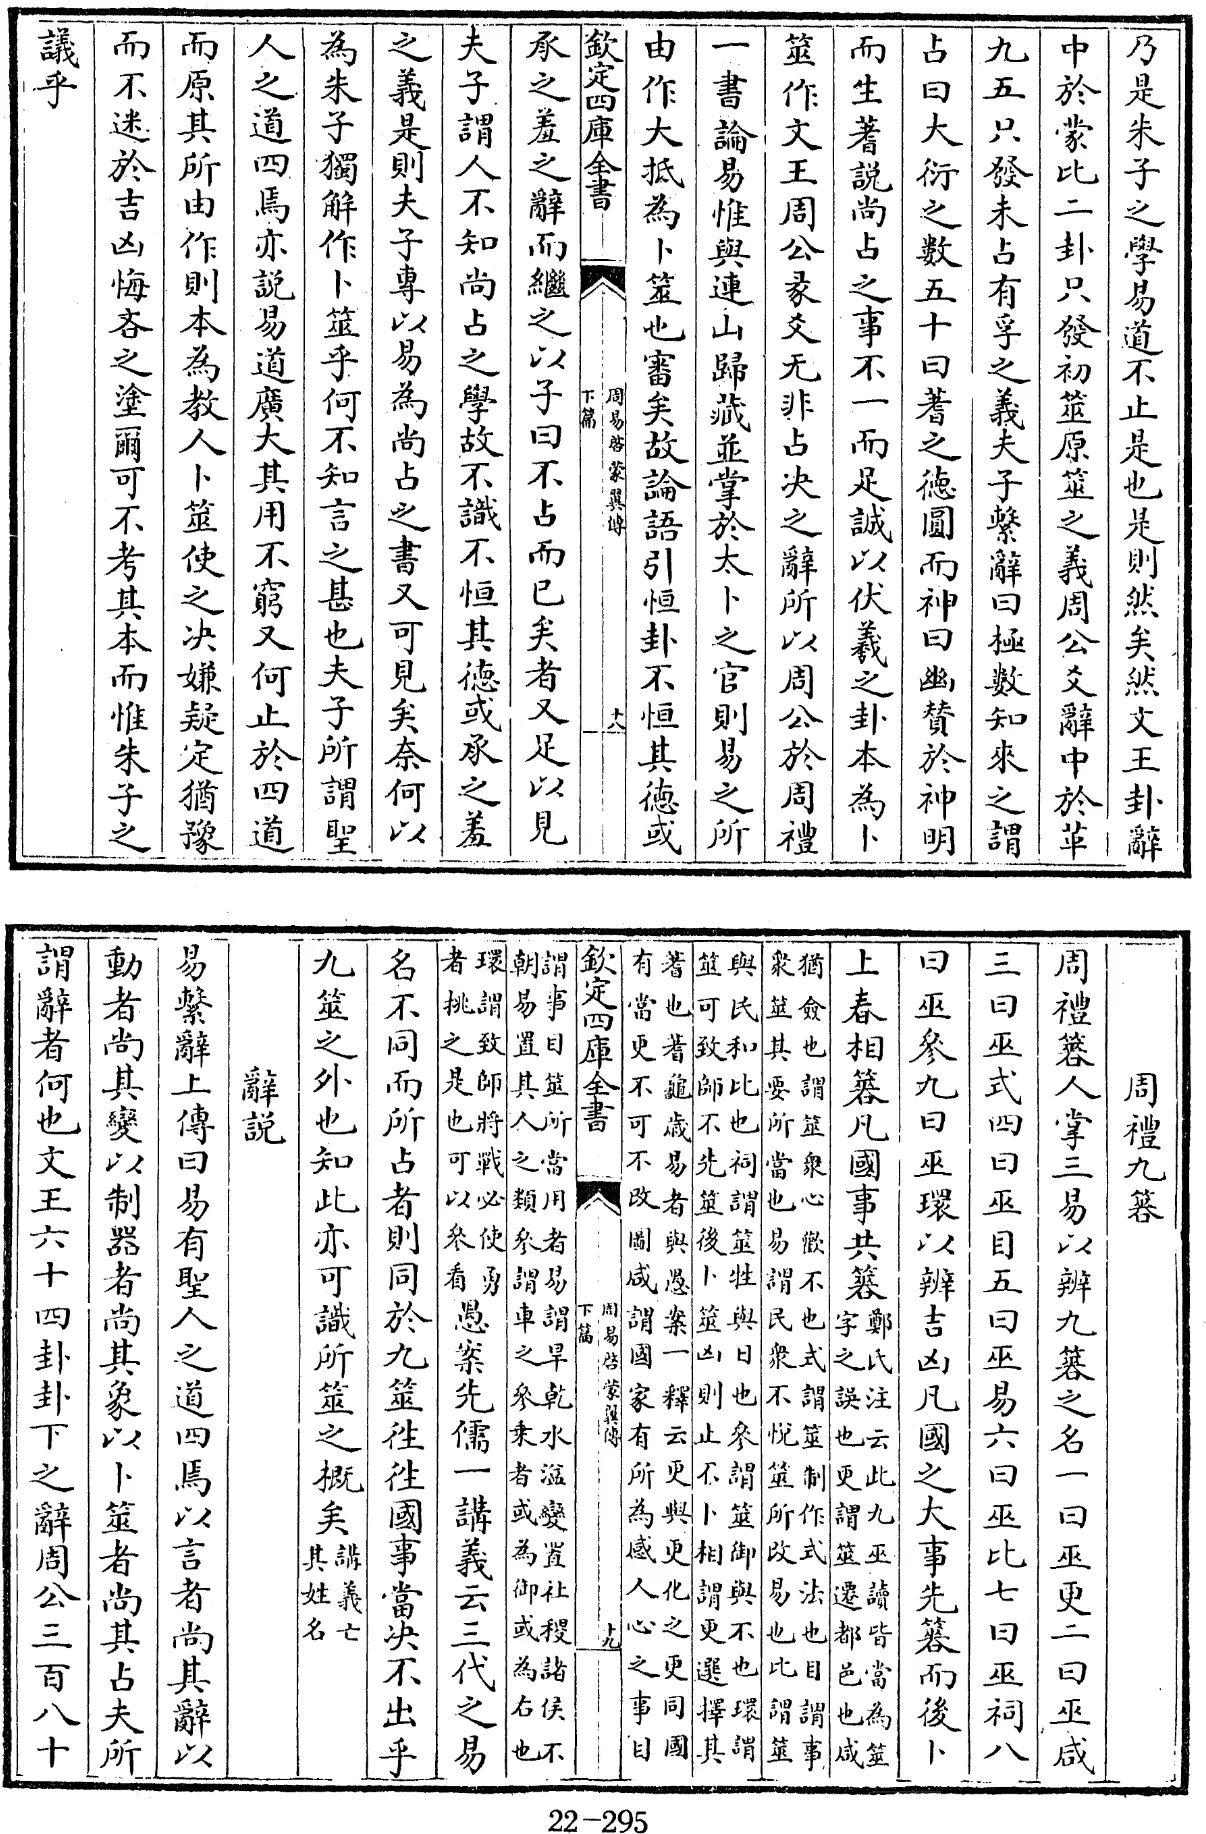 乃是朱子之學易道不止是也是則然矣然文王卦辭
中於蒙比二卦只發初筮原筮之義周公爻辭中於革
九五只發未占有孚之義夫子繫辭曰極數知來之謂
占曰大衍之數五十曰蓍之德圓而神曰幽贊於神明
而生蓍說尚占之事不一而足誠以伏羲之卦本為卜
筮作文王周公彖爻无非占决之辭所以周公於周禮
一書論易惟與連山歸藏並掌於太卜之官則易之所
由作大抵為卜筮也審矣故論語引恒卦不恒其德或
欽定四庫全書
周易啓蒙翼傳
下篇
十八
承之羞之辭而繼之以子曰不占而已矣者又足以見
夫子謂人不知尚占之學故不識不恒其德或承之羞
之義是則夫子專以易為尚占之書又可見矣奈何以
為朱子獨解作卜筮乎何不知言之甚也夫子所謂聖
人之道四焉亦説易道廣大其用不窮又何止於四道
而原其所由作則本為教人卜筮使之决嫌疑定猶豫
而不迷於吉凶悔吝之塗爾可不考其本而惟朱子之
議乎
周禮九簭
周禮簭人掌三易以辨九簭之名一曰巫更二曰巫咸
三曰巫式四曰巫目五曰巫易六曰巫比七曰巫祠八
曰巫參九曰巫環以辨吉凶凡國之大事先簭而後卜
上春相簭凡國事共簭
鄭氏注云此九巫讀皆當為筮
字之誤也更謂筮遷都邑也咸
猶僉也謂筮衆心歡不也式謂筮制作式法也目謂事
衆筮其要所當也易謂民衆不悅筮所改易也比謂筮
與民和比也祠謂筮牲與日也參謂筮御與不也環謂
筮可致師不先筮後卜筮凶則止不卜相謂更選擇其
蓍也蓍龜歲易者與愚案一釋云更與更化之更同國
有當更不可不改圖咸謂國家有所為感人心之事目
欽定四庫全書
周易啓蒙翼傳
下篇
十九
謂事目筮所當用者易謂旱乾水溢變置社稷諸侯不
朝易置其人之類參謂車之參乘者或為御或為右也
環謂致師將戰必使勇
者挑之是也可以叅看
愚案先儒一講義云三代之易
名不同而所占者則同於九筮徃徃國事當决不出乎
九筮之外也知此亦可識所筮之概矣
講義亡
其姓名
辭説
易繫辭上傳曰易有聖人之道四焉以言者尚其辭以
動者尚其變以制器者尚其象以卜筮者尚其占夫所
謂辭者何也文王六十四卦卦下之辭周公三百八十
22-295